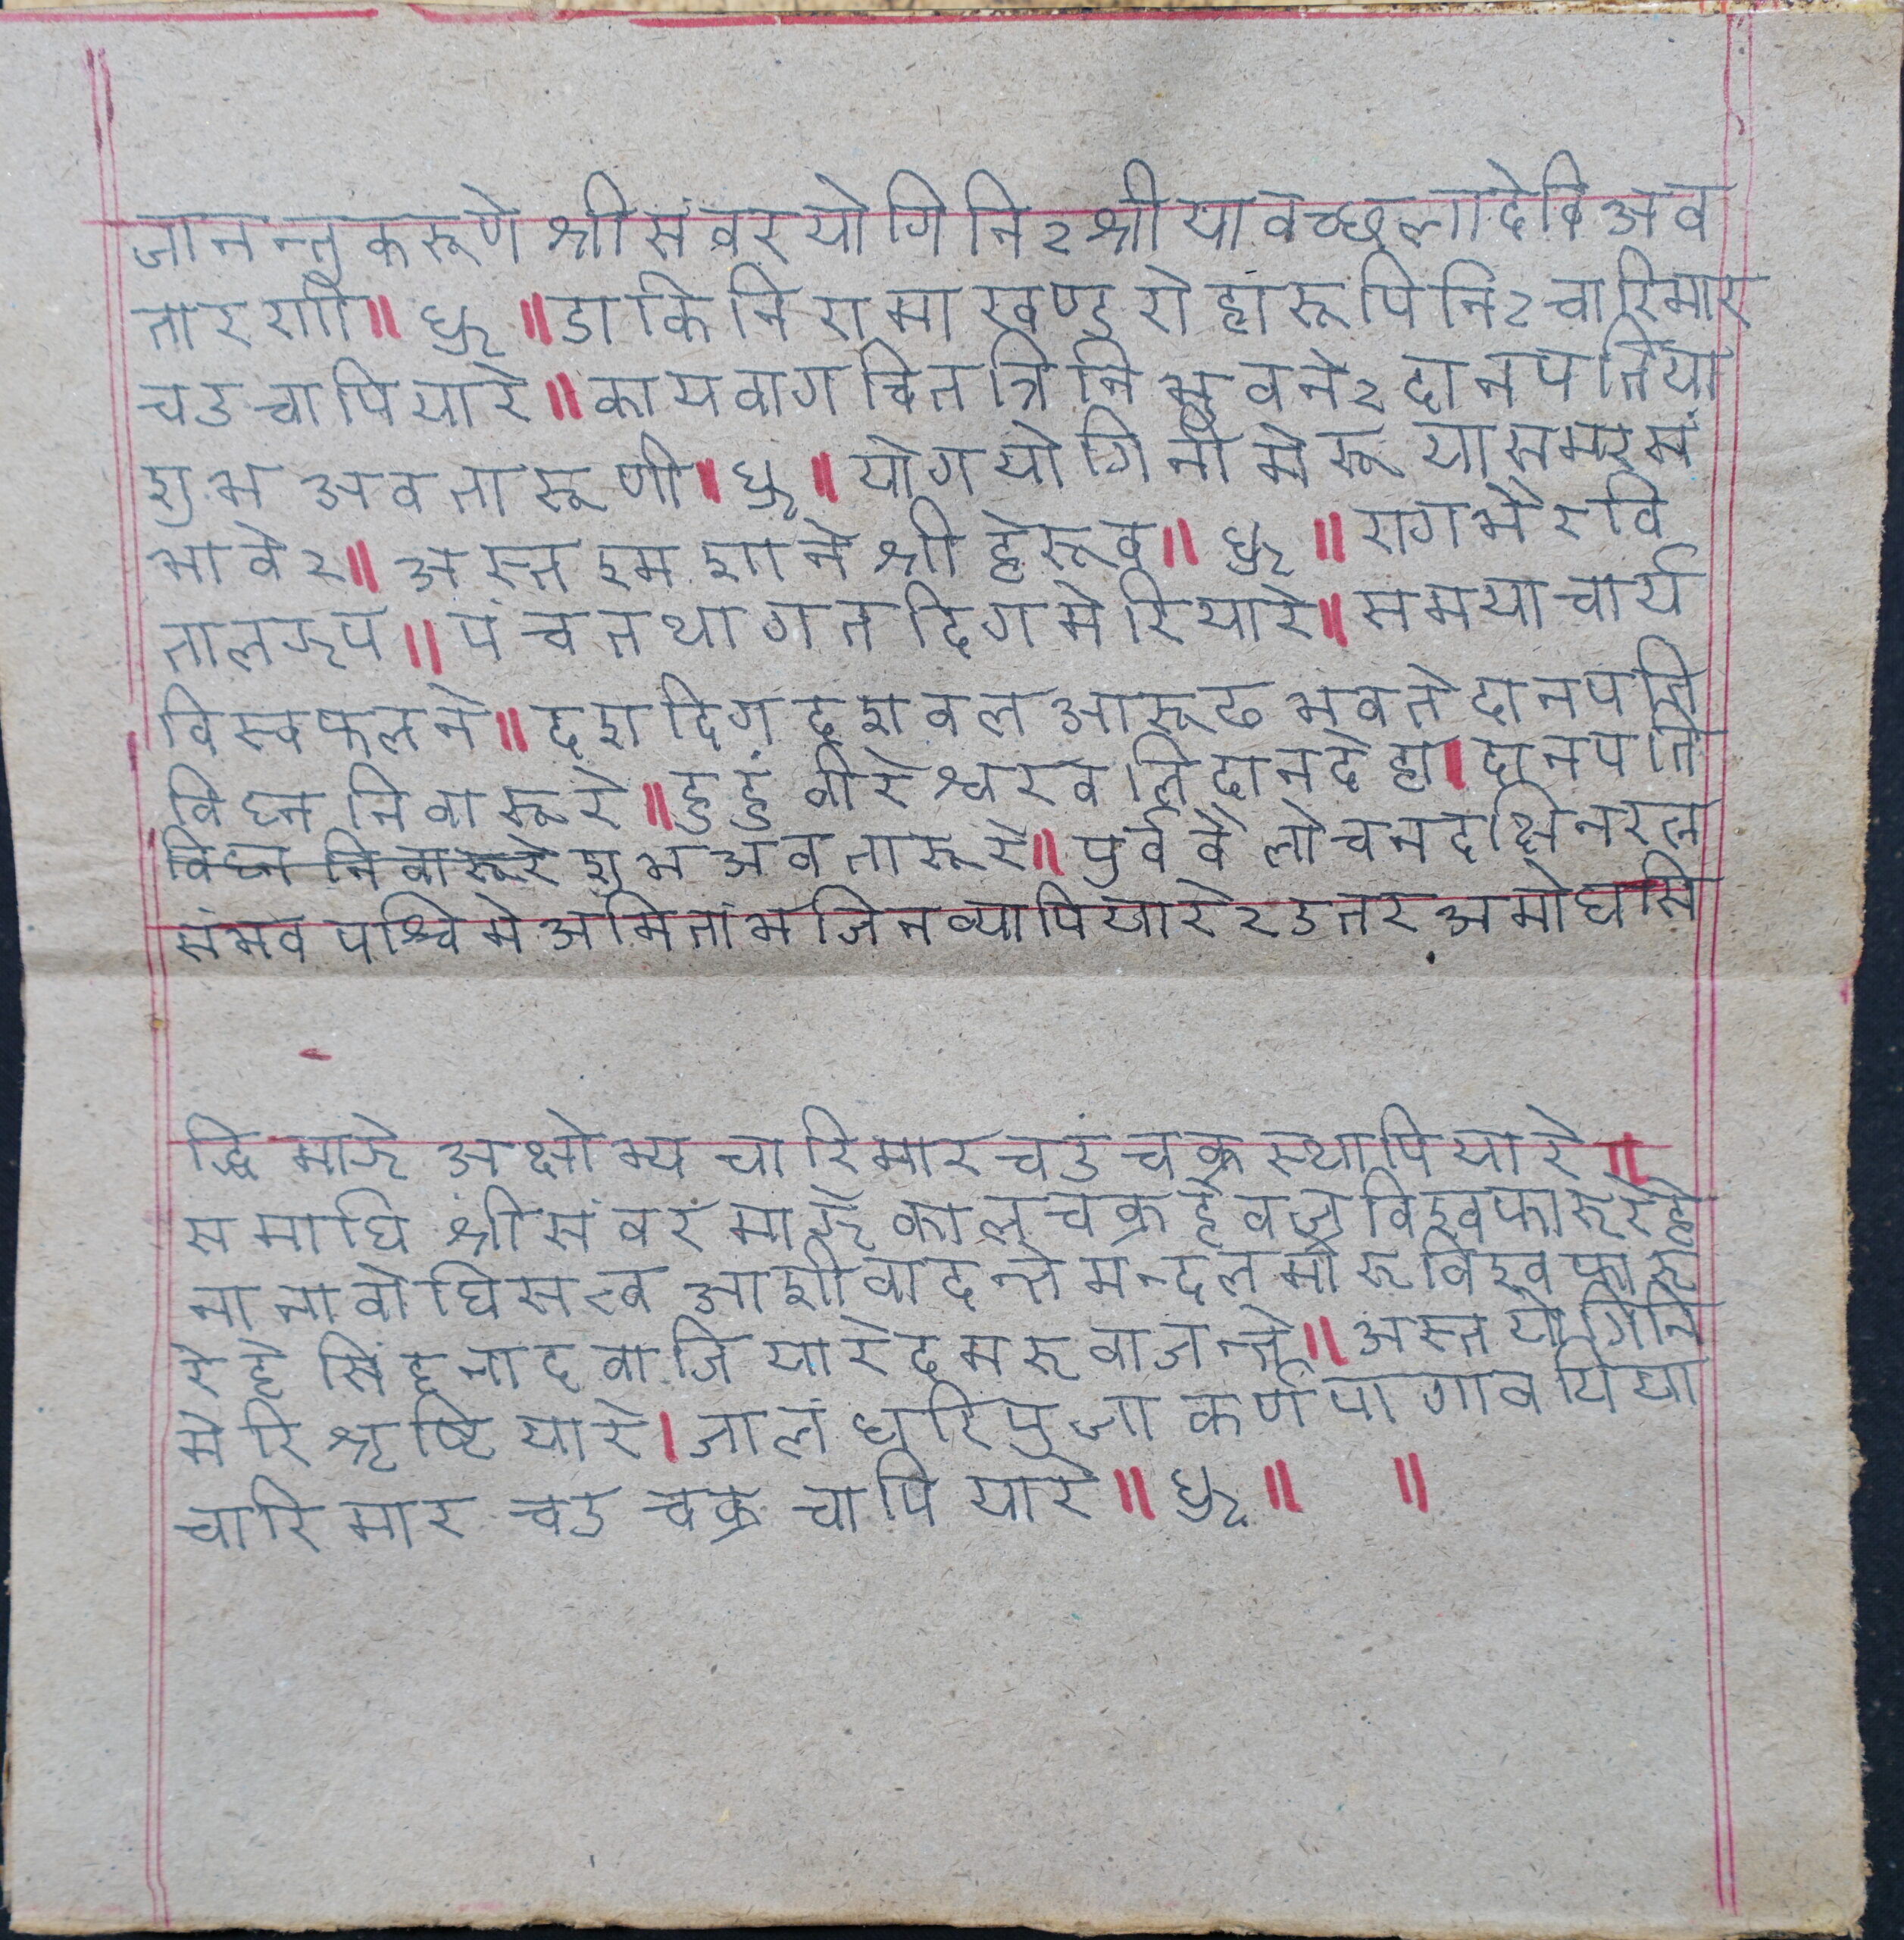 जानन्तु करूणे श्री संवर योगिनि२ श्रीया वच्छलादेवि अव
तारणी॥ ध्रू ॥ डाकिनि रामा खण्डरोहा रूपिनि२ चारिमार
चउ चापियारे॥ कायवाग चित त्रिनि भुवने२ दानपतिया
शुभ अवतारूणी॥ ध्रू॥ योग योगिनी मेरू या समरसं
भावे२॥ अस्त श्मशाने श्री हेरूव॥ ध्रू ॥ राग भैरवि
ताल झप॥ पंचतथागत दिग मेरियारे॥ समयाचार्य
विस्वफलने॥ दशदिग दशवल आरूढ भवते दानपति
विघ्न निवारूरे॥ हुहुं वीरेश्वर वलिदानदेहा। दानपति
विघ्न निवारूरे शुभ अवतारूरे॥ पुर्व वैलोचन दक्षिनरत्न
संभव पश्चिमे अमिताभ जिनव्यापियारे२ उतर अमोघसि
द्धि माझे अक्षोभ्य चारिमार चउ चक्र स्थापियारे॥
समाधि श्रीसंवर माझे कालचक्र हेवज्र विश्वफारूरेहे
नाना वोधिसत्व आशीवादन्ते मन्दल मारू विश्व फारू
रेहे सिंहनाद वाजियारे दमरू वाजन्ते॥ अस्त योगिनि
मेरि श्रृष्टियारे। जालंधरिपुजा कर्णपा गावयिया
चारिमार चउ चक्र चापियारे॥ ध्रू॥ ॥